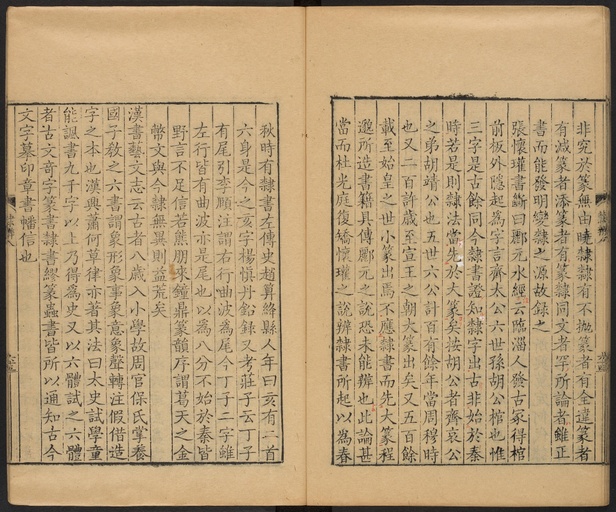 非究於篆無由曉隸隸有不抛篆者有全違篆者
有減篆者添篆者有篆隸同文者罕所論者雖正
書而能發明變隸之源故錄之
張懷瓘書斷曰酈元水經云臨淄人發古冢得棺
前板外隱起為字言齊太公六世孫胡公棺也惟
三字是古餘同今隸書證知隸字出古非始於秦
時若是則隸法當先於大篆矣按胡公者齊哀公
之弟胡靖公也五世六公計百有餘年當周穆時
也又二百許歲至宣王之朝大篆出矣又五百餘
載至始皇之世小篆出焉不應隸書而先大篆程
邈所造書籍具傳酈元之說恐未能辨也此論甚
當而杜光庭復矯懷瓘之說辨隸書所起以為春
秋時有隸書左傳史趙算絳縣人年曰亥有二首
六身是今之亥字楊愼丹鉛錄又考莊子云丁子
有尾引李頤注謂右行曲波為尾今丁子二字雖
左行皆有曲波亦是尾也以為八分不始於秦皆
野言不足信若熊朋來鐘鼎篆韻序謂葛天之金
幣文與今隸無異則益荒矣
漢書藝文志云古者八歲入小學故周官保氏掌養
國子敎之六書謂象形象事象意象聲轉注假借造
字之本也漢興蕭何草律亦著其法曰太史試學童
能諷書九千字以上乃得為史又以六體試之六體
者古文奇字篆書隸書繆篆蟲書皆所以通知古今
文字摹印章書幡信也